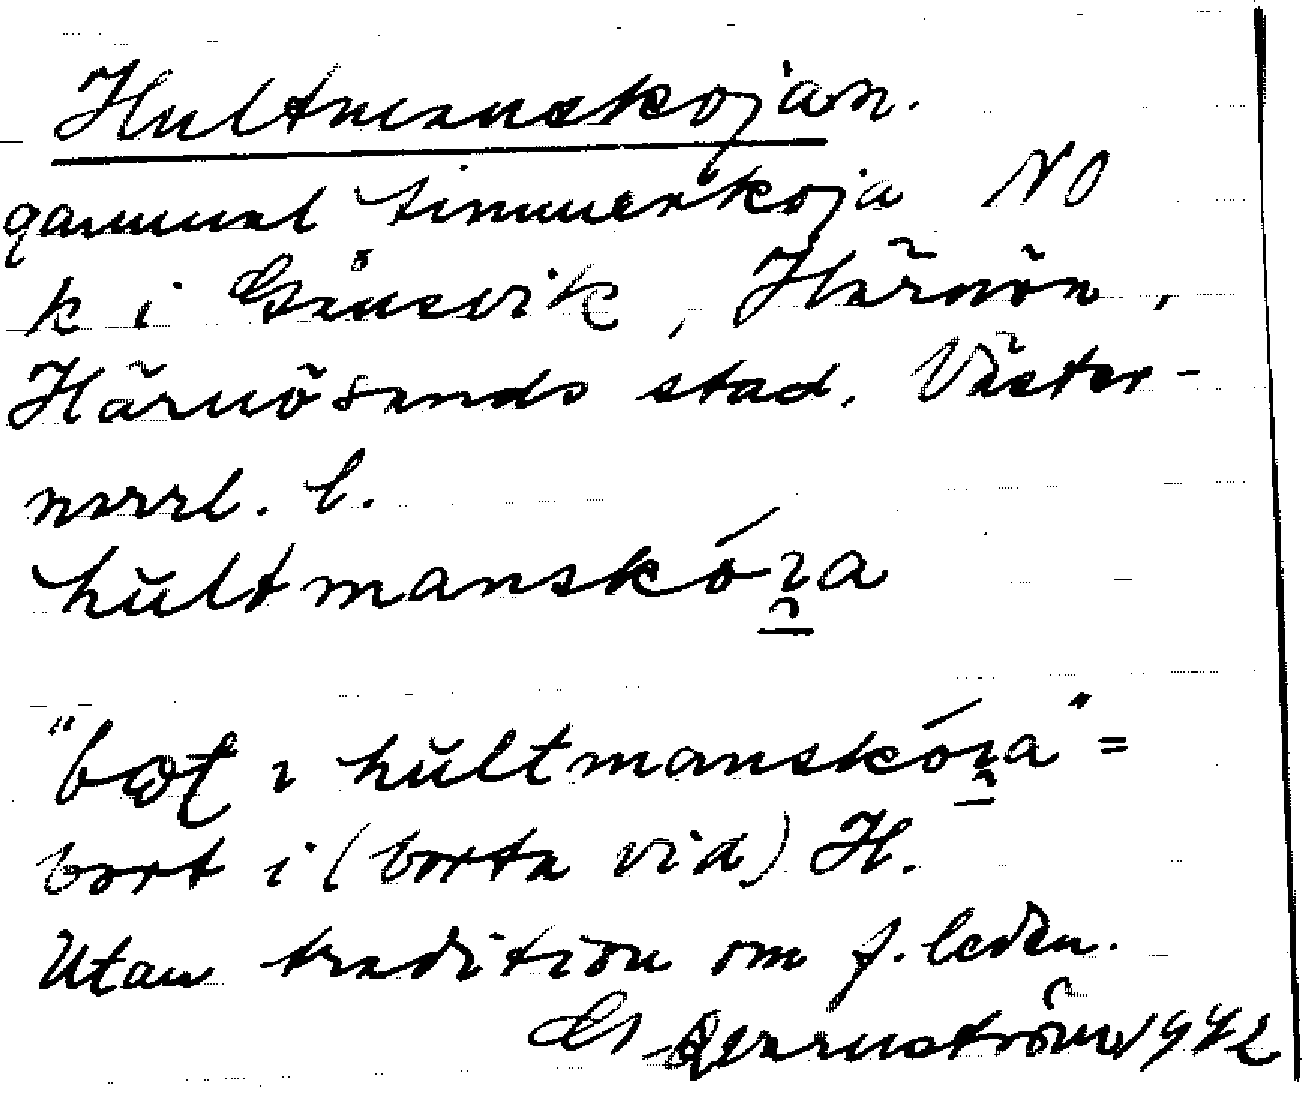 Hultmanskojan.
gammal timmerkoja NO
k i Gånsvik, Härnön,
Härnösands stad. Väster-
norrl. l.
hultmanskóʒa
"bo̵t ı hultmanskóʒa" =
bort i (borta vid) H.
Utan tradition om f. leden.